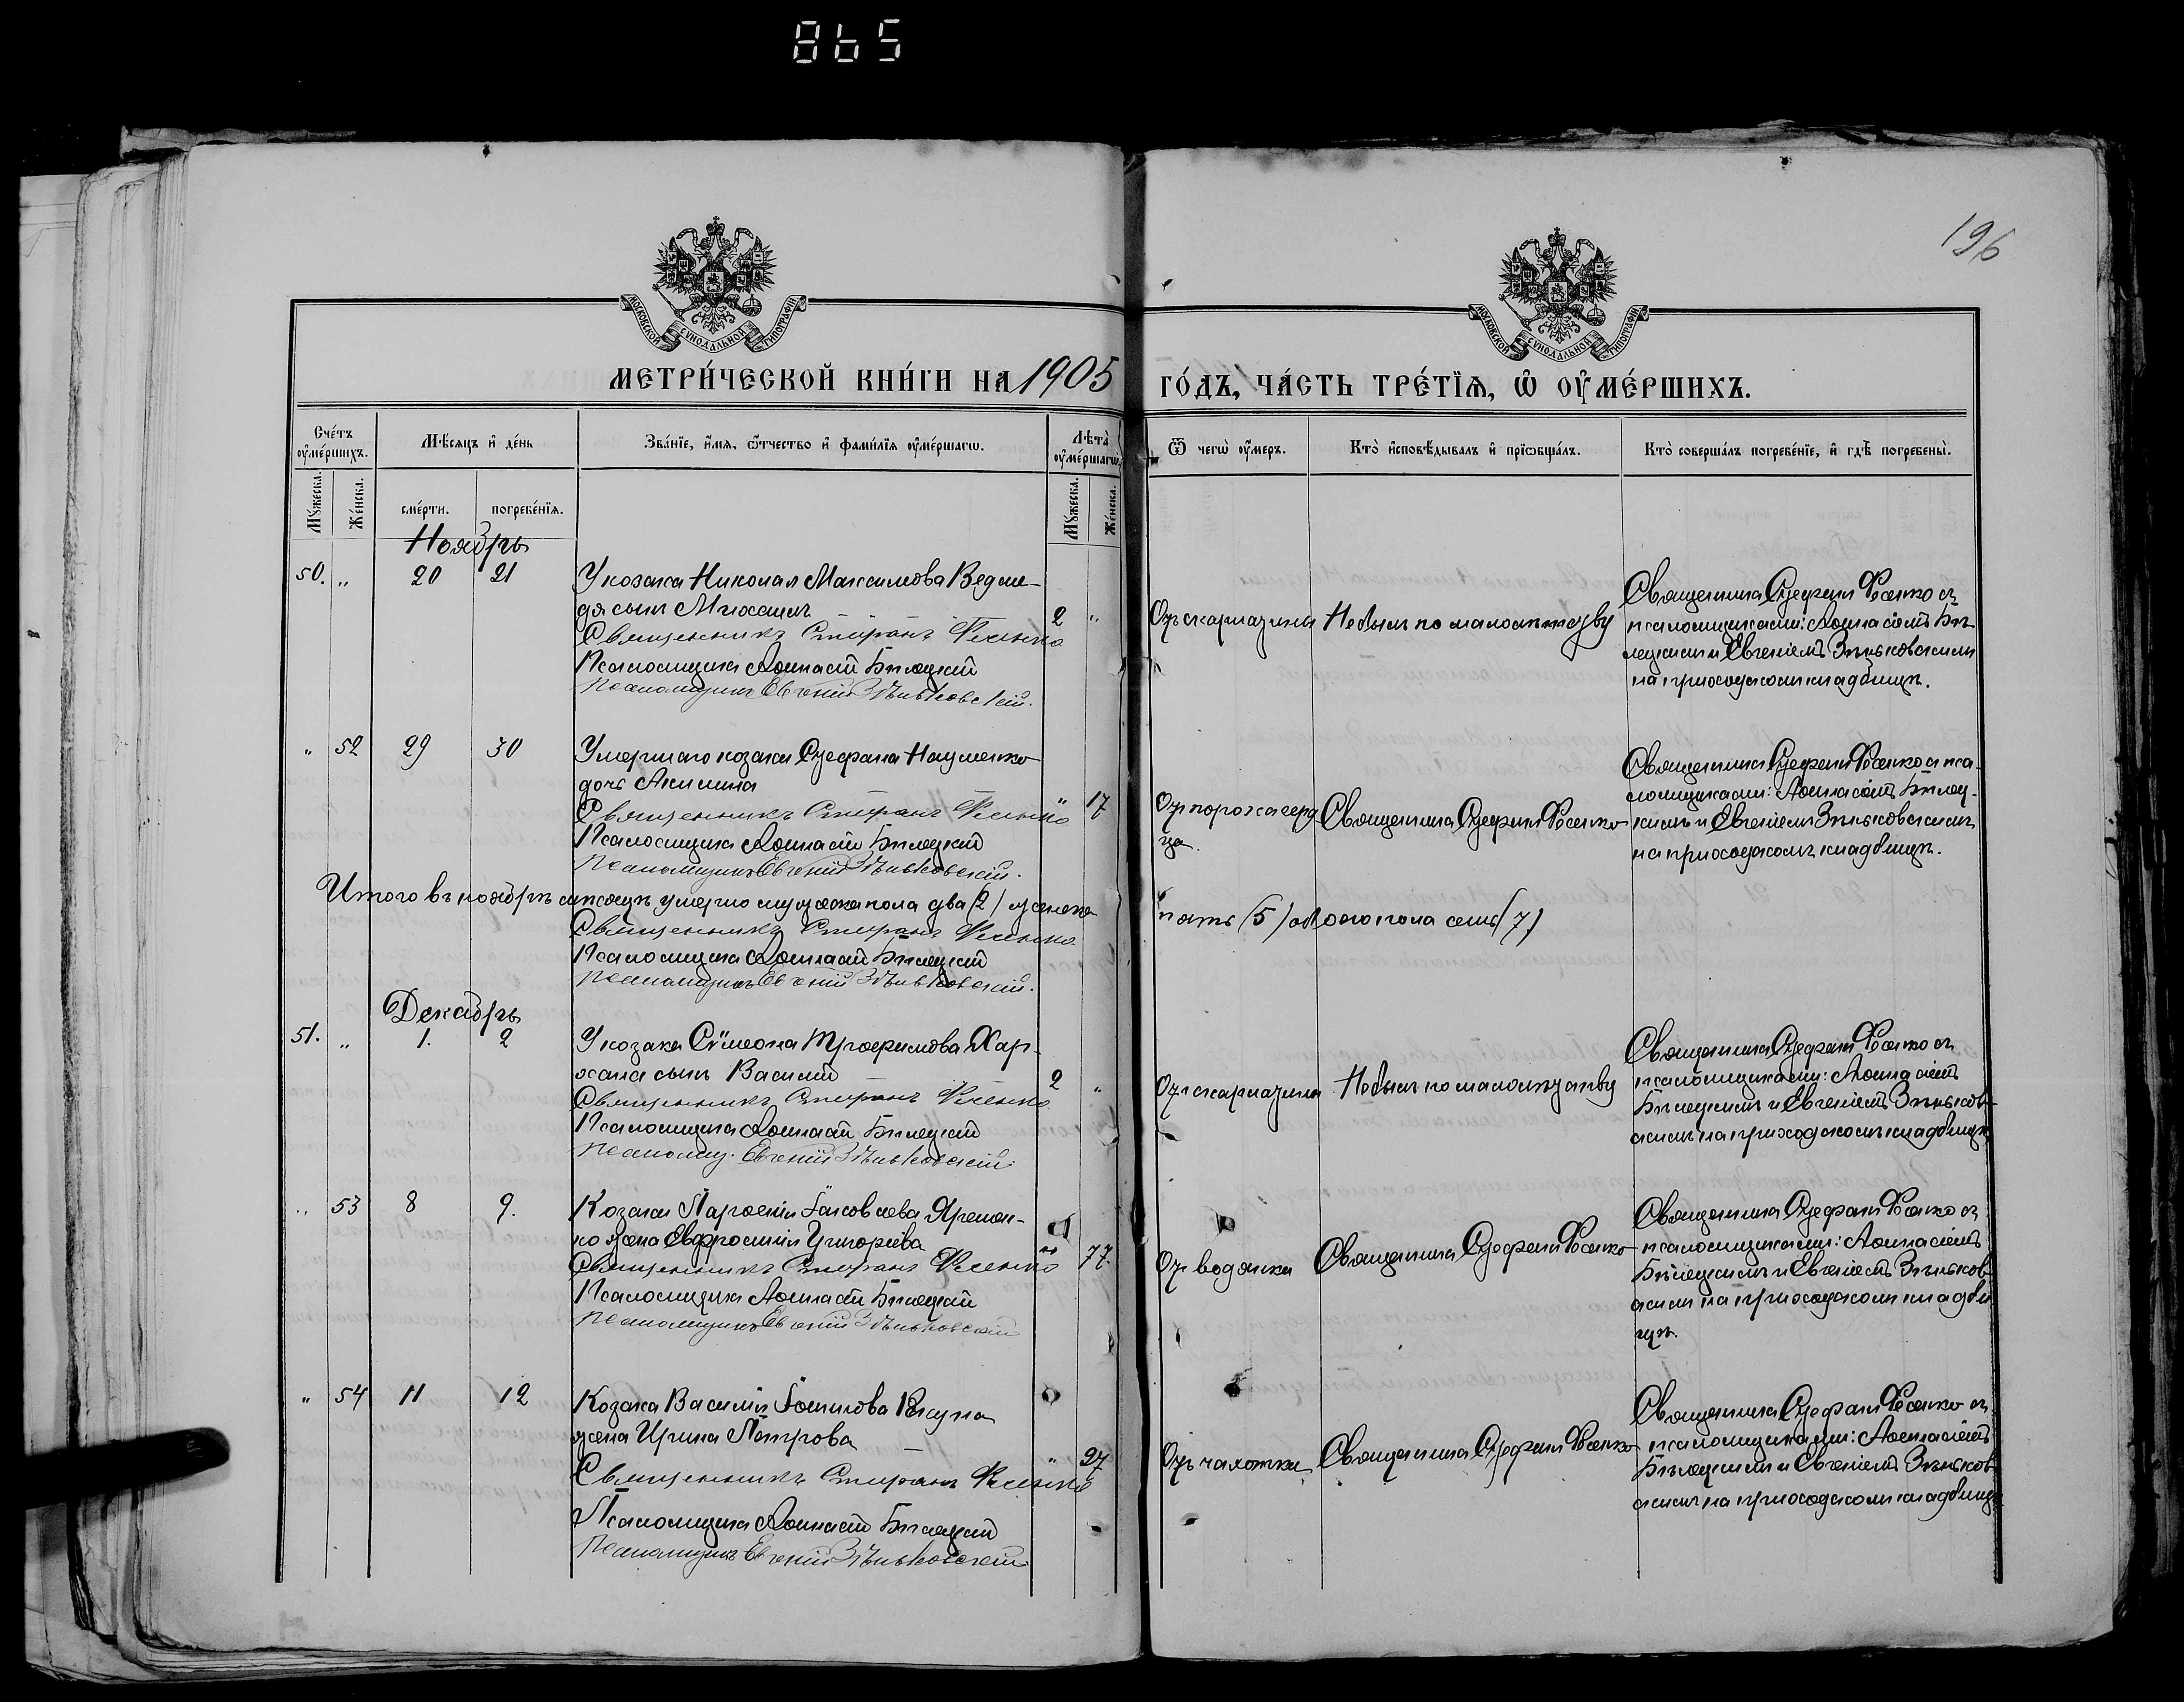 865
196
МОСКОВСКОЙ СУНОДАЛЬНОЙ ТИПОГРАФІИ
МОСКОВСКОЙ СУНОДАЛЬНОЙ ТИПОГРАФІИ
МЕТРИ́ЧЕСКОЙ КНИ́ГИ НА 1905 ГО́ДЪ, ЧА́СТЬ ТРЕ́ТІѦ, Ѡ҆ ОУ҆МЕ́РШИХЪ.
Сче́тъ оу҆ме́ршихъ.
Мѣ́сяцъ и҆ де́нь
Зва́нїе, и҆́мя, ѻ҆́тчество и҆ фами́лїя оу҆ме́ршагѡ.
Лѣта̀ оу҆ме́ршагѡ.
Ѿ чегѡ̀ оу҆́меръ.
Кто̀ и҆сповѣ́дывалъ и҆ прїѡбща́лъ.
Кто̀ соверша́лъ погребе́нїе, и҆ гдѣ̀ погребены̀.
Мꙋ́жеска.
Же́нска.
сме́рти.
погребе́нїя.
Мꙋ́жеска.
Же́нска.
Ноябрь
50. „ 20 21
У козака Николая Максимова Ведме-
дя сынъ Михаилъ
2 „
Священникъ Стефанъ Фесенко
Псаломщикъ Аѳанасій Бѣлецкій
Псаломщикъ Евгеній Зѣньковскій.
Отъ скарлатины
Не былъ по малолѣтству
Священникъ Стефанъ Фесенко съ
псаломщиками: Аѳанасіемъ Бѣ-
лецкимъ и Евгеніемъ Зѣньковскимъ
на приходскомъ кладбищѣ.
„ 52 29 30
Умершаго козака Стефана Науменко
дочь Акилина
„ 17
Священникъ Стефанъ Фесенко
Псаломщикъ Аѳанасій Бѣлецкій
Псаломщикъ Евгеній Зѣньковскій.
Отъ порока серд-
ца.
Священникъ Стефанъ Фесенко
Священникъ Стефанъ Фесенко съ пса-
ломщиками: Аѳанасіемъ Бѣлец-
кимъ и Евгеніемъ Зѣньковскимъ
на приходскомъ кладбищѣ.
Итого въ ноябрѣ мѣсяцѣ умерло мужеска пола два (2) женска
пять (5) обоего пола семь (7)
Священникъ Стефанъ Фесенко
Псаломщикъ Аѳанасій Бѣлецкій
Псаломщикъ Евгеній Зѣньковскій.
Декабрь
51. „ 1. 2
У козака Сѵмеона Трофимова Хар-
сынъ Василій
2 „
Священникъ Стефанъ Фесенко
Псаломщикъ Аѳанасій Бѣлецкій
Псаломщ. Евгеній Зѣньковскій.
Отъ скарлатины
Не былъ по малолѣтству
Священникъ Стефанъ Фесенко съ
псаломщиками: Аѳанасіемъ
Бѣлецкимъ и Евгеніемъ Зѣньков-
скимъ на приходскомъ кладбищѣ
„ 53 8 9.
Козака Парѳенія Іаковлева Яремен-
ко жена Евфросинія Григоріева
„ 77.
Священникъ Стефанъ Фесенко
Псаломщикъ Аѳанасій Бѣлецкій
Псаломщикъ Евгеній Зѣньковскій
Отъ водянки
Священникъ Стефанъ Фесенко
Священникъ Стефанъ Фесенко съ
псаломщиками: Аѳанасіемъ
Бѣлецкимъ и Евгеніемъ Зѣньков-
скимъ на приходскомъ кладби-
щѣ.
„ 54 11 12
Козака Василія
жена Ирина Петрова
„ 27
Священникъ Стефанъ Фесенко
Псаломщикъ Аѳанасій Бѣлецкій
Псаломщикъ Евгеній Зѣньковскій
Отъ чахотки
Священникъ Стефанъ Фесенко
Священникъ Стефанъ Фесенко съ
псаломщиками: Аѳанасіемъ
Бѣлецкимъ и Евгеніемъ Зѣньков-
скимъ на приходскомъ кладбищѣ